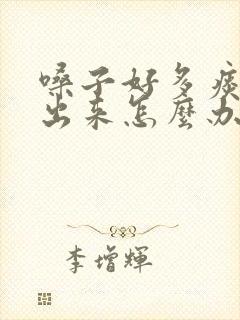 嗓子好多痰
出来怎麼办
李增輝